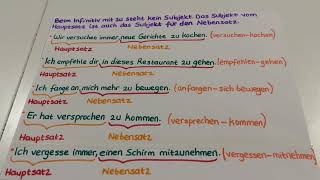 Beim Infinitiv mit zu steht kein Subjekt. Das Subjekt vom
Hauptsatz ist auch das Subjekt für den Nebensatz.
Wir versuchen immer, neue Gerichte zu kochen. (versuchen-kochen)
Hauptsatz Nebensatz
Ich empfehle dir, in dieses Restaurant zu gehen. (empfehlen-gehen)
Hauptsatz Nebensatz
Ich fange an, mich mehr zu bewegen. (anfangen-sich bewegen)
Hauptsatz Nebensatz
Er hat versprochen zu kommen. (versprechen-kommen)
Hauptsatz Nebensatz
Ich vergesse immer, einen Schirm mitzunehmen. (vergessen-mitnehmen)
Hauptsatz Nebensatz